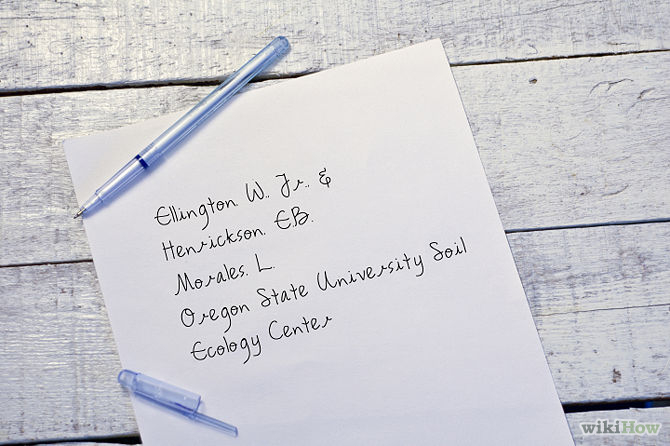 Ellington. W., Jr., &
Henrickson. E.B.
Morales. L.
Oregon State University Soil
Ecology Center
wikiHow